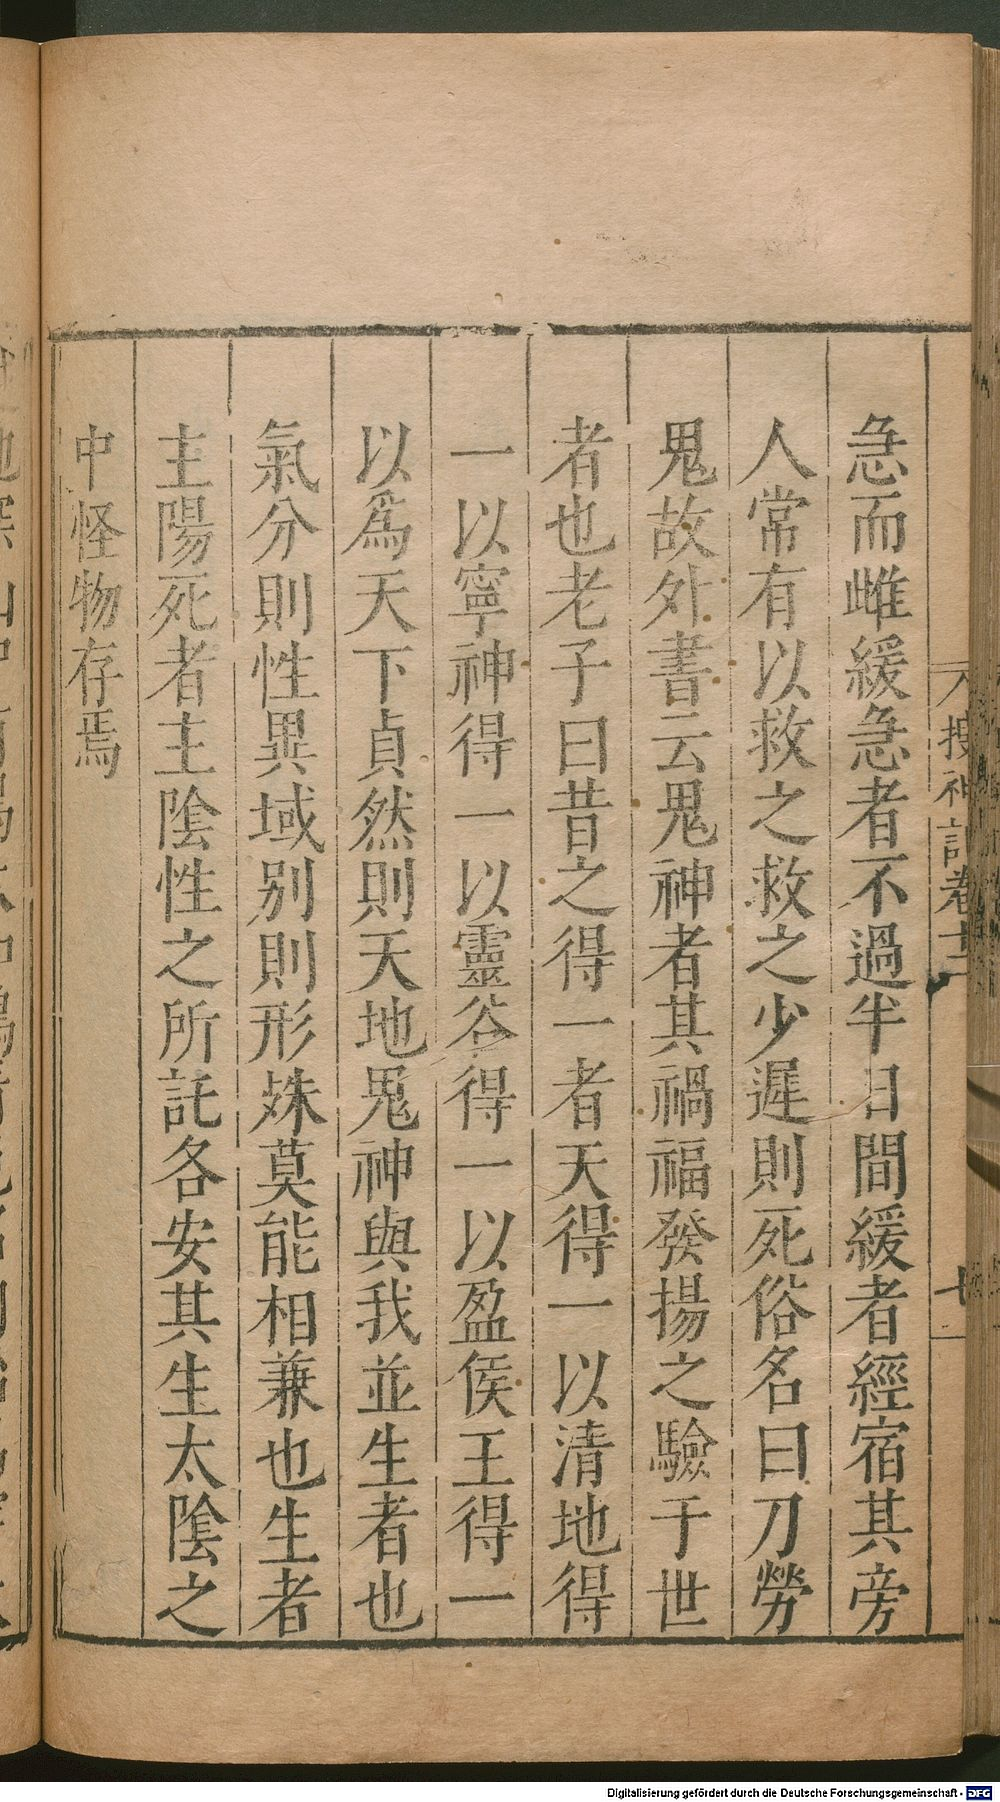 急而雌緩急者不過半日間緩者經宿其旁
人常有以救之救之少遲則死俗名曰刀勞
鬼故外書云鬼神者其禍福發揚之驗于世
者也老子曰昔之得一者天得一以清地得
一以寧神得一以靈谷得一以盈侯王得一
以爲天下貞然則天地鬼神與我並生者也
氣分則性異域別則形姝莫能相兼也生者
主陽死者主陰性之所託各安其生太陰之
中怪物存焉
搜神記卷十二
七
Digitalisierung gefördert durch die Deutsche Forschungsgemeinschaft - DFG